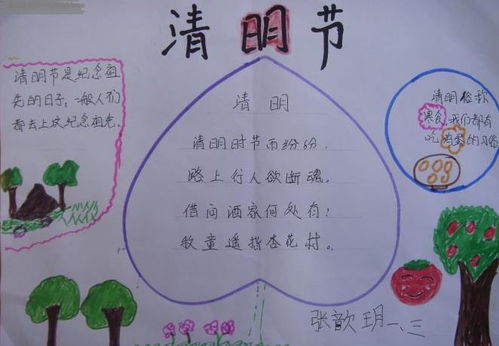 清明节
清明节是纪念祖
先的日子，一般人们
都去上坟纪念祖先。
清明
清明时节雨纷纷，
路上行人欲断魂。
借问酒家何处有？
牧童遥指杏花村。
清明俗称
寒食，我们都有
吃鸡蛋的习俗
张歆玥 一、三